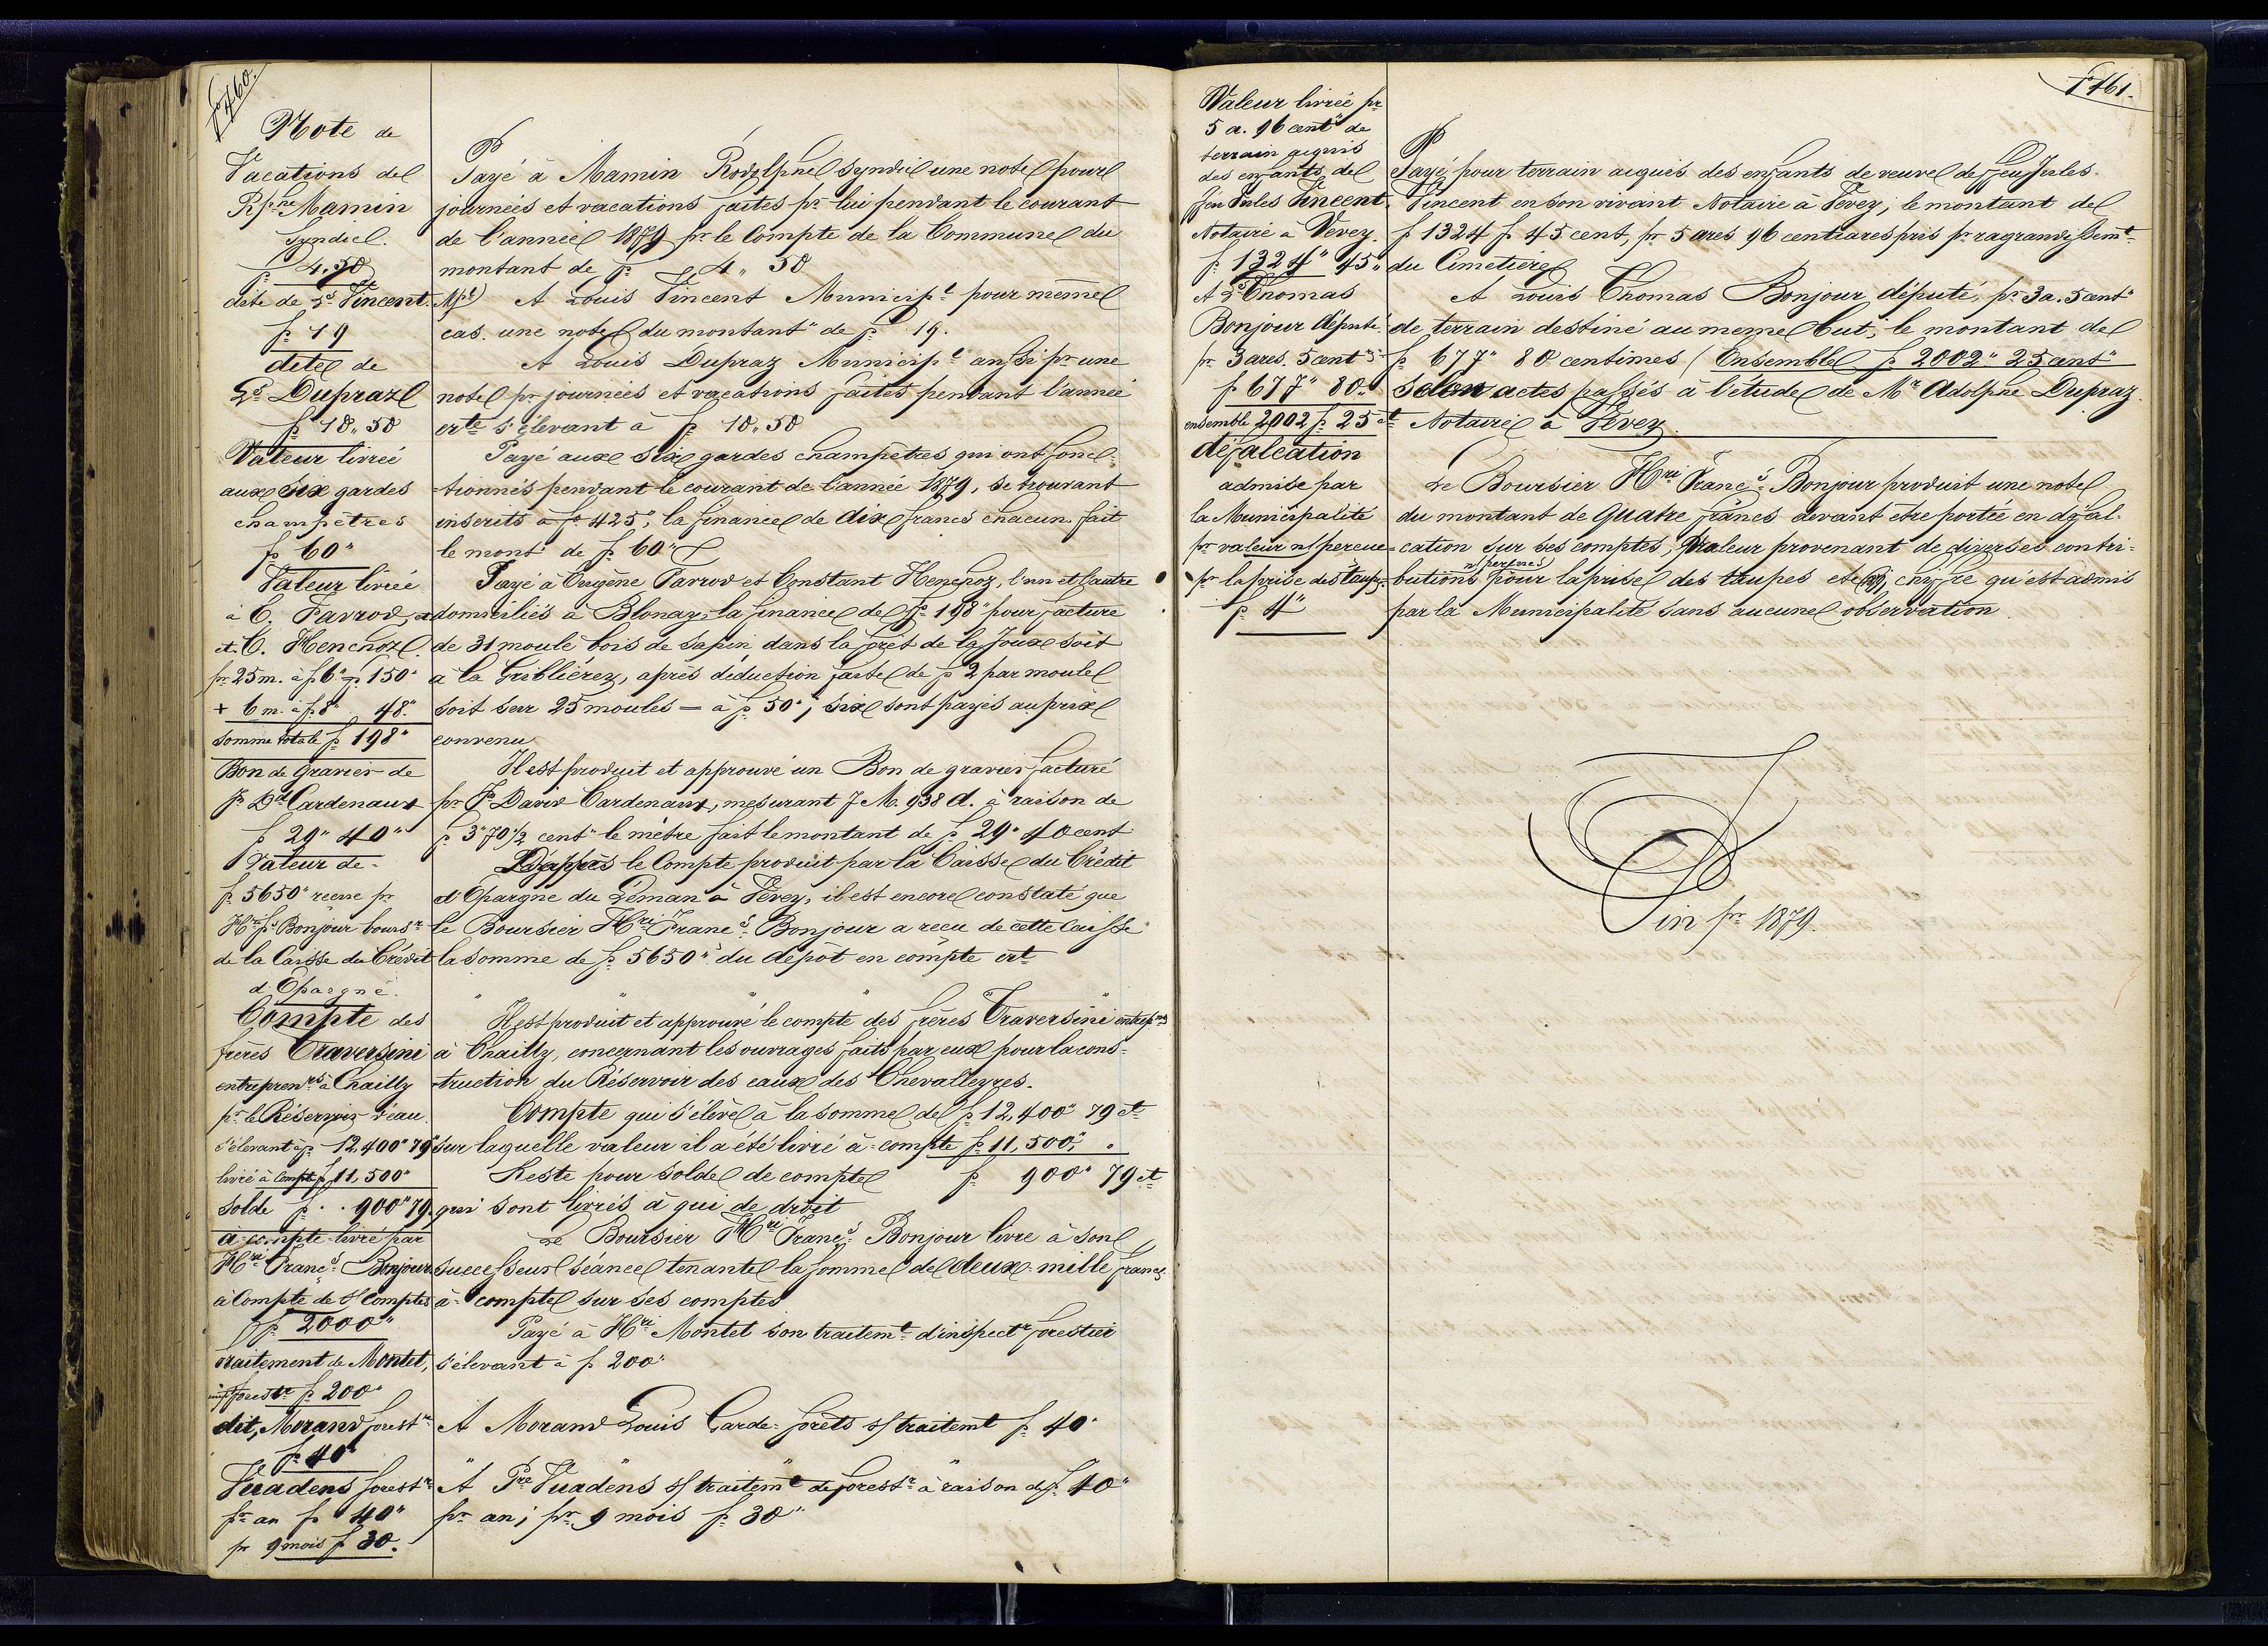 fo 460.
Note de
Vacations de
Rphe Mamin
Syndic.
fr. 4.50
dite de Ls Vincent. Mpl
fr. 19
dite de
Ls Dupraz
fr 10„50
Valeur livrée
aux six gardes
champêtres
fr 60"
Valeur livrée
à E. Favrod,
et C. Henchoz
pr 25 m. à f 6" = fr. 150"
+ 6 m. à fr 8" 48."
somme totale fr 198"
Bon de gravier de
Js Dd Cardenaux
fr 29" 40"
Valeur de
fr. 5650" recue pr
Hri Fs Bonjour boursr
de la Caisse du Crédit
d'Epargne.
Compte des
frères Traversini
entreprenrs à Chailly
pr le Réservoir d'eau.
s'élevant à fr 12,400" 79
livré à compte fr 11,500"
solde fr . . 900" 79.
à compte livré par
Hri Francs Bonjour
à Compte de s/ Comptes
fr. 2000"
traitement de Montet,
inspr forestr fr 200"
dit, Morand forestr
fr 40"
Vuadens forestr
pr an fr 40"
pr 9 mois fr 30.
Payé à Mamin Rodolphe syndic une note pour
journées et vacations faites pr lui pendant le courant
de l'année 1879 pr le Compte de la Commune du
montant de fr 4„ 50
A Louis Vincent Municipl pour même
cas. une note du montant de fr 19.
A Louis Dupraz Municipl aussi pr une
note pr journées et vacations faites pendant l'année
crte s'élevant à fr 10„50
Payé aux six gardes champêtres qui ont fonc-
-tionnés pendant le courant de l'année 1879, se trouvant
inscrits à fo 425, la finance de dix francs chacun fait
le mont de fr 60"
Payé à Eugène Favrod et Constant Henchoz, l'un et l'autre
domiciliés à Blonay, la finance de fr 198" pour facture
de 31 moule bois de sapin, dans la forêt de la Joux soit
à la Griblièrez, après déduction faite de fr 2 par moule
soit sur 25 moules = à fr 50"; six sont payés au prix
convenu
Il est produit et approuvé un Bon de gravier facturé
pr Js David Cardenaux, mesurant 7 M. 938 d. à raison de
fr 3"70 1/2 cent" le mètre fait le montant de fr 29" 40 cent
D'après le Compte produit par la Caisse du Crédit
d'Epargne du Léman à Vevey, il est encore constaté que
le Boursier Hri Francs Bonjour a recu de cette Caisse
la somme de fr 5650" du dépôt en compte crt
Il est produit et approuvé le compte des frères Traversini entreprs
à Chailly, concernant les ouvrages faits par eux pour la cons-
-truction du Réservoir des eaux des Chevalleyres.
Compte qui s'élève à la somme de fr 12,400" 79 ct
sur laquelle valeur il a été livré à-compte fr 11,500"; "
Reste pour solde de compte fr 900" 79 ct
qui sont livrés à qui de droit
Le Boursier Hri Francs Bonjour livre à son
successeur séance tenante la somme de deux-mille francs
à-compte sur ses comptes
Payé à Hri Montet son traitemt d'inspectr forestier
s'élevant à fr 200"
A Morand Louis Garde-forêts s/ traitemt fr 40"
A Pre Vuadens s/ traitemt de forestr à raison de fr 40"
pr an; pr 9 mois fr 30"
fo 461.
Valeur livrée pr
5 a. 96 cent" de
terrain acquis
des enfants de
feu Jules Vincent.
Notaire à Vevey.
fr. 1324" 45"
A Ls Thomas
Bonjour député.
pr 3 ares. 5 cent"
fr 677" 80"
ensemble 2002 fr 25 ct
défalcation
admise par
la Municipalité
pr valeur n/ percue
pr la prise des taupes.
fr. 4"
Payé pour terrain acquis des enfants de veuve de feu Jules
Vincent en son vivant Notaire à Vevey, le montant de
fr 1324 fr 45 cent, pr 5 ares 96 centiares pris pr ragrandissemt
du Cimetière
A Louis Thomas Bonjour député, pr 3 a. 5 cent"
de terrain destiné au même but, le montant de
fr 677" 80 centimes (Ensemble fr 2002" 25 cent"
selon actes passés à l'étude de Mr Adolphe Dupraz
Notaire à Vevey.
Le Boursier Hri Francs Bonjour produit une note
du montant de quatre francs devant être portée en défal-
-cation sur ses comptes, Valeur provenant de diverses contri-
-butions n/ percues pour la prise des taupes etc chiffre qu'est admis
par la Municipalité sans aucune observation.
Fin pr 1879.